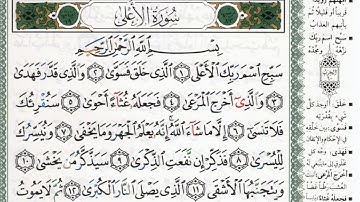 سُورَةُ الْأَعْلَىٰ
بِسْمِ اللَّهِ الرَّحْمَٰنِ الرَّحِيمِ
سَبِّحِ اسْمَ رَبِّكَ الْأَعْلَى ١ الَّذِي خَلَقَ فَسَوَّىٰ ٢ وَالَّذِي قَدَّرَ فَهَدَىٰ
٣ وَالَّذِي أَخْرَجَ الْمَرْعَىٰ ٤ فَجَعَلَهُ غُثَاءً أَحْوَىٰ ٥ سَنُقْرِئُكَ
فَلَا تَنسَىٰ ٦ إِلَّا مَا شَاءَ اللَّهُ إِنَّهُ يَعْلَمُ الْجَهْرَ وَمَا يَخْفَىٰ ٧ وَنُيَسِّرُكَ
لِلْيُسْرَىٰ ٨ فَذَكِّرْ إِن نَّفَعَتِ الذِّكْرَىٰ ٩ سَيَذَّكَّرُ مَن يَخْشَىٰ ١٠
وَيَتَجَنَّبُهَا الْأَشْقَى ١١ الَّذِي يَصْلَى النَّارَ الْكُبْرَىٰ ١٢ ثُمَّ لَا يَمُوتُ